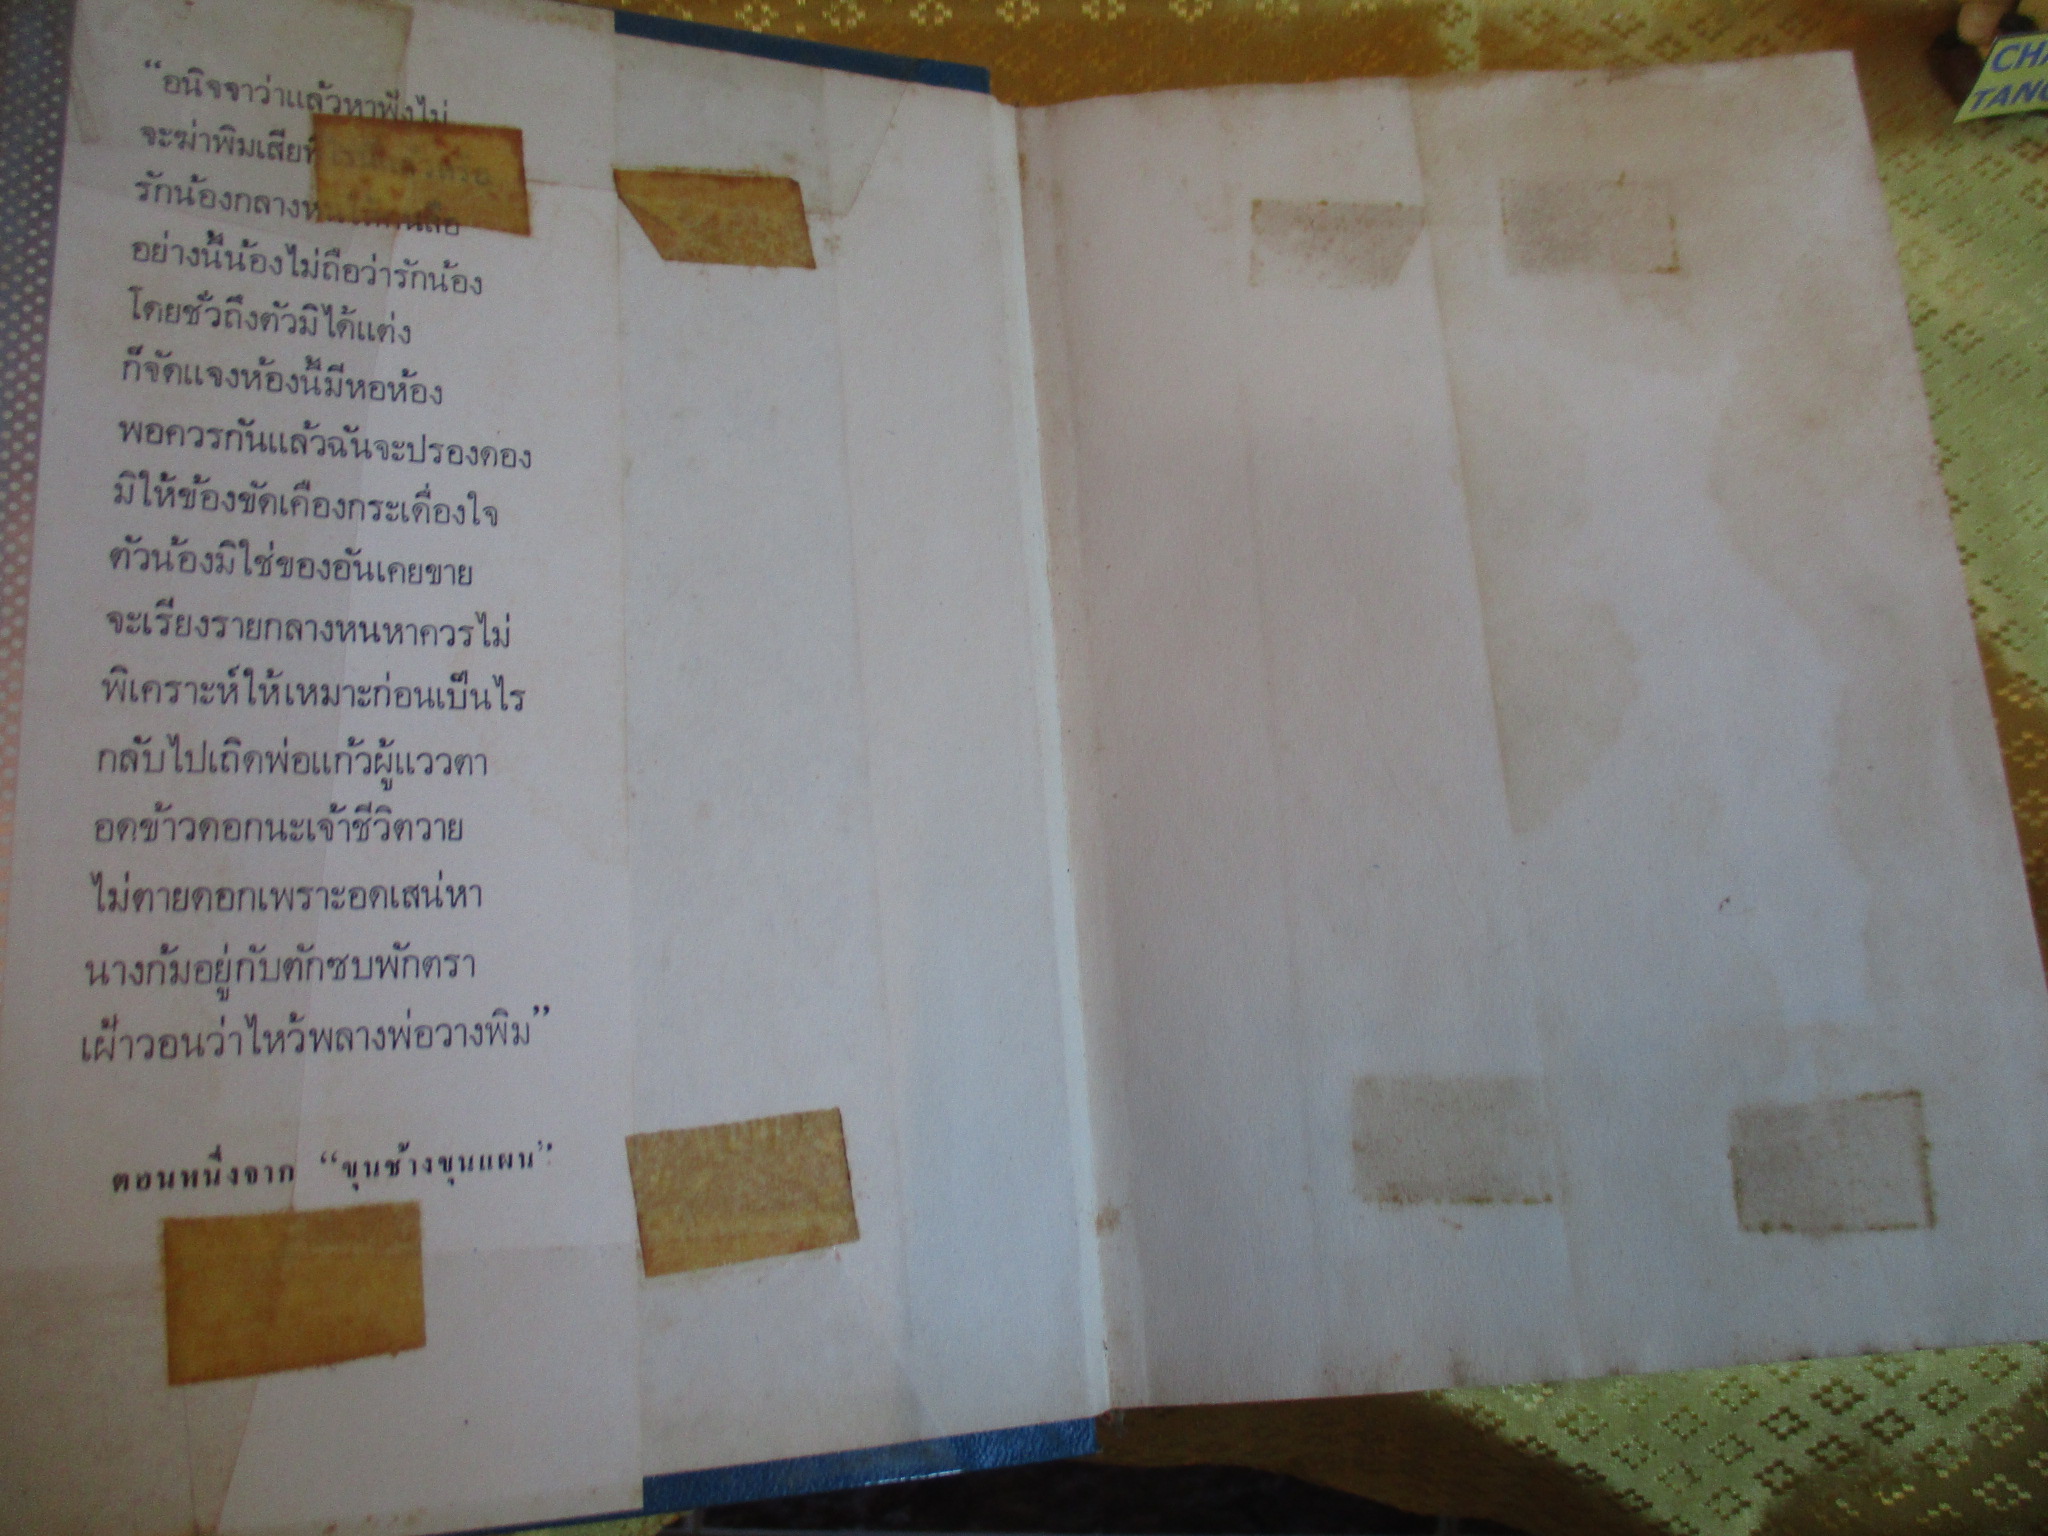 “อนิจจาว่าแล้วหาฟังไม่
จะฆ่าพิมเสียที
รักน้องกลางหนให้คนลือ
อย่างนี้น้องไม่ถือว่ารักน้อง
โดยชั่วถึงตัวมิได้แต่ง
ก็จัดแจงห้องนี้มีหอห้อง
พอควรกันแล้วฉันจะปรองดอง
มิให้ข้องขัดเคืองกระเดื่องใจ
ตัวน้องมิใช่ของอันเคยขาย
จะเรียงรายกลางหนหาควรไม่
พิเคราะห์ให้เหมาะก่อนเป็นไร
กลับไปเถิดพ่อแก้วผู้แววตา
อดข้าวดอกนะเจ้าชีวิตวาย
ไม่ตายดอกเพราะอดเสน่หา
นางก้มอยู่กับตักซบพักตรา
เฝ้าวอนว่าไหว้พลางพ่อวางพิม”
ตอนหนึ่งจาก “ขุนช้างขุนแผน”